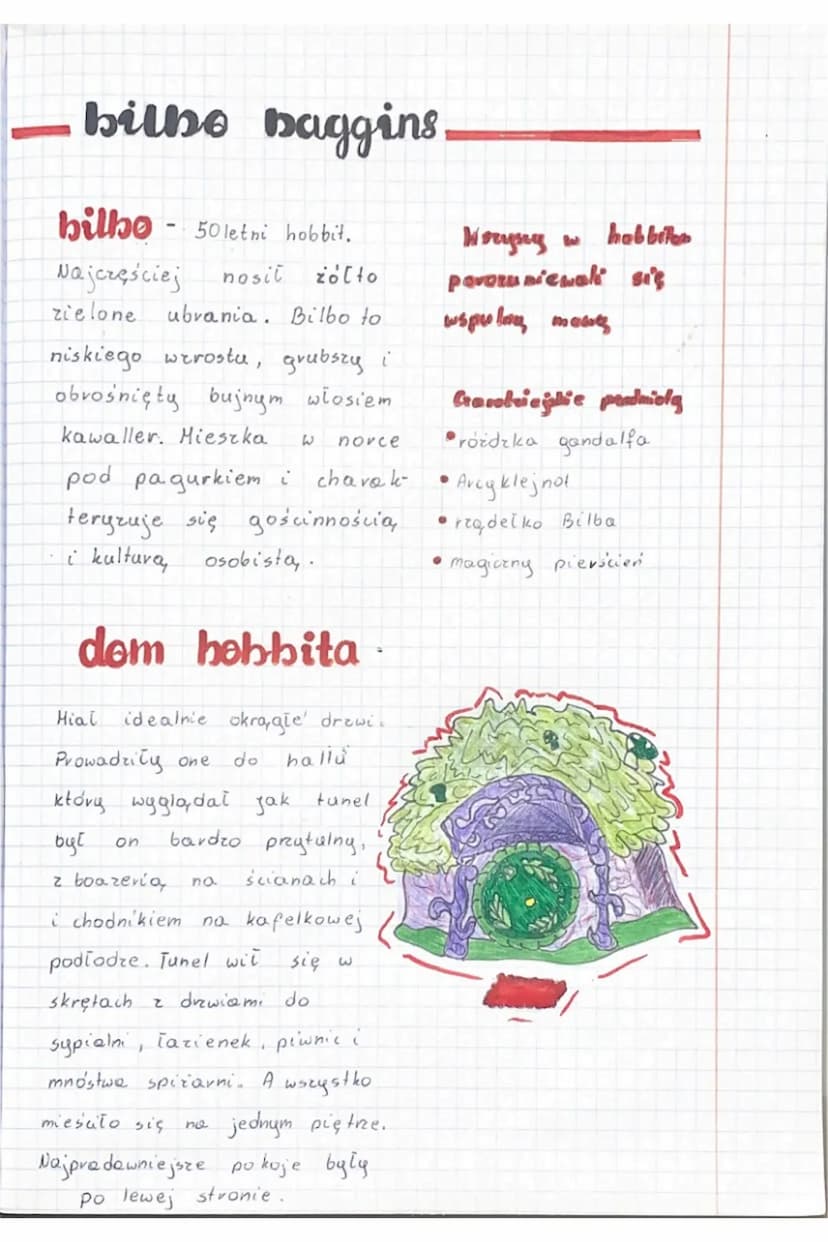 bilbo baggins
bilbo - 50letni hobbit.
Najczęściej nosił żółto
zielone ubrania. Bilbo to
niskiego wzrostu, grubszy i
obrośnięty bujnym włosiem
kawaller. Mieszka w norce
pod pagurkiem i charak-
teryzuje się gościnnością
i kulturą osobistą.
Wszyscy w hobbicie
porozumiewali się
wspulną mową
Czarodziejskie
• różdżka gandalfa
• Arcyklejnot
• rządełko Bilba
• magiczny pierścień
dom hobbita
Miał idealnie okrągłe drzwi.
Prowadziły one do hallu
który wyglądał jak tunel
był on bardzo przytulny,
z boazerią na ścianach i
i chodnikiem na kafelkowej
podłodze. Tunel wił się w
skrętach z drzwiami do
sypialni, łazienek, piwnic i
mnóstwa spiżarni. A wszystko
mieśüło się na jednym piętrze.
Najpradawniejsze pokoje były
po lewej stronie.